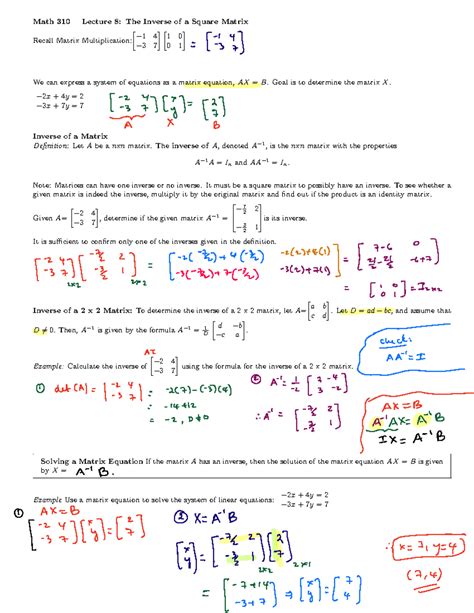 Math 310 Lecture 8: The Inverse of a Square Matrix
Recall Matrix Multiplication: [-1 4; -3 7] [1 0; 0 1] = [-1 4; -3 7]
We can express a system of equations as a matrix equation, AX = B. Goal is to determine the matrix X.
-2x + 4y = 2
-3x + 7y = 7
[-2 4; -3 7] [x; y] = [2; 7]
A X B
Inverse of a Matrix
Definition: Let A be a nxn matrix. The inverse of A, denoted A⁻¹, is the nxn matrix with the properties
A⁻¹A = Iₙ and AA⁻¹ = Iₙ.
Note: Matrices can have one inverse or no inverse. It must be a square matrix to possibly have an inverse. To see whether a
given matrix is indeed the inverse, multiply it by the original matrix and find out if the product is an identity matrix.
Given A= [-2 4; -3 7], determine if the given matrix A⁻¹ = [-7/2 2; -3/2 1] is its inverse.
It is sufficient to confirm only one of the inverses given in the definition.
[-2 4; -3 7] 2x2 [-7/2 2; -3/2 1] 2x2 = [-2(-7/2)+4(-3/2) -2(2)+4(1); -3(-7/2)+7(-3/2) -3(2)+7(1)] = [7-6 0; 21/2-21/2 -6+7]
= [1 0; 0 1] = I2x2
Inverse of a 2 x 2 Matrix: To determine the inverse of a 2 x 2 matrix, let A= [a b; c d]. Let D = ad - bc, and assume that
D ≠ 0. Then, A⁻¹ is given by the formula A⁻¹ = 1/D [d -b; -c a].
check:
AA⁻¹ = I
Example: Calculate the inverse of [-2 4; -3 7] using the formula for the inverse of a 2 x 2 matrix.
① det(A) = |-2 4; -3 7| = -2(7)-(-3)(4)
= -14+12
= -2, D≠0
② A⁻¹ = 1/-2 [7 -4; 3 -2]
∴ A⁻¹ = [-7/2 2; -3/2 1]
AX = B
A⁻¹AX = A⁻¹B
IX = A⁻¹B
Solving a Matrix Equation If the matrix A has an inverse, then the solution of the matrix equation AX = B is given
by X = A⁻¹B.
Example Use a matrix to solve the system of linear equations:
-2x + 4y = 2
-3x + 7y = 7
① AX = B
[-2 4; -3 7] [x; y] = [2; 7]
② X = A⁻¹B
[x; y] = [-7/2 2; -3/2 1] 2x2 [2; 7] 2x1
= [-7+14; -3+7] ⇒ [x; y] = [7; 4]
∴ x = 7, y = 4
(7,4)